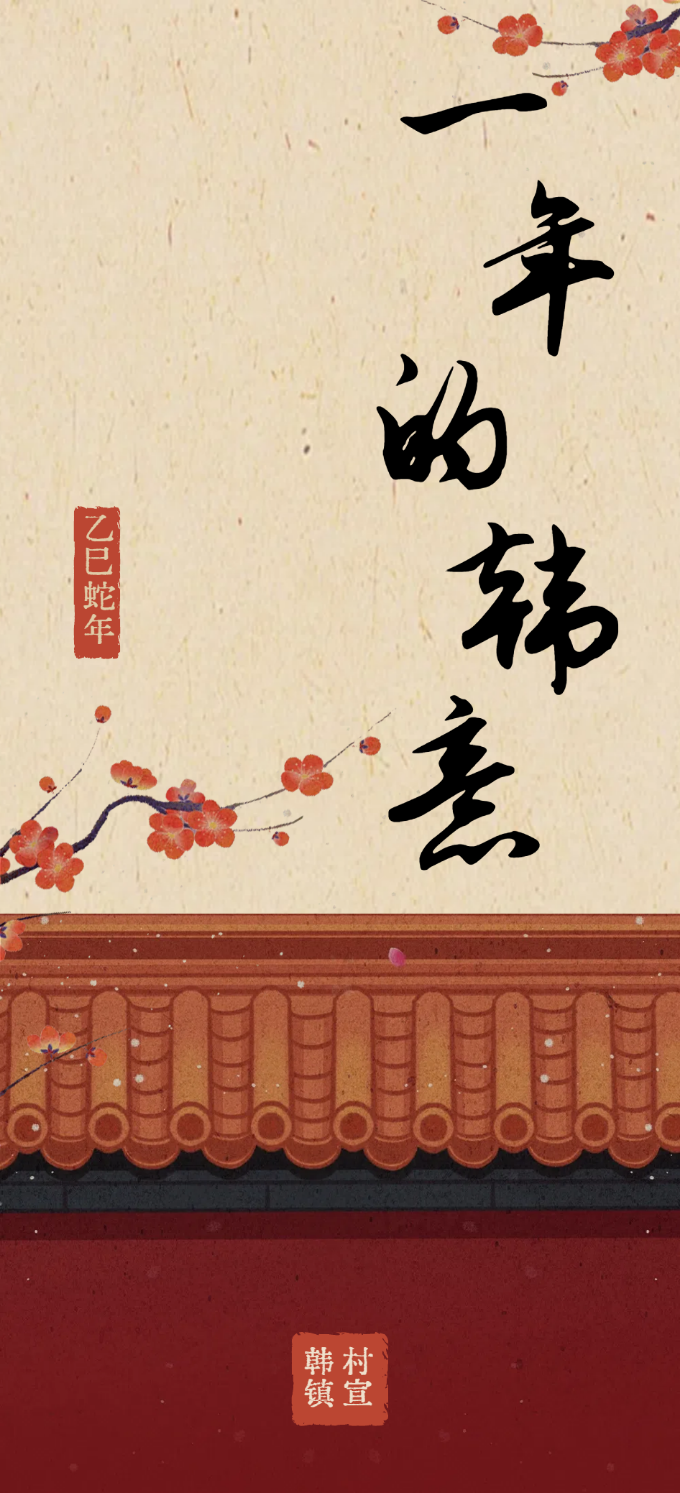 一年的韩意
乙巳蛇年
韩镇
村宣